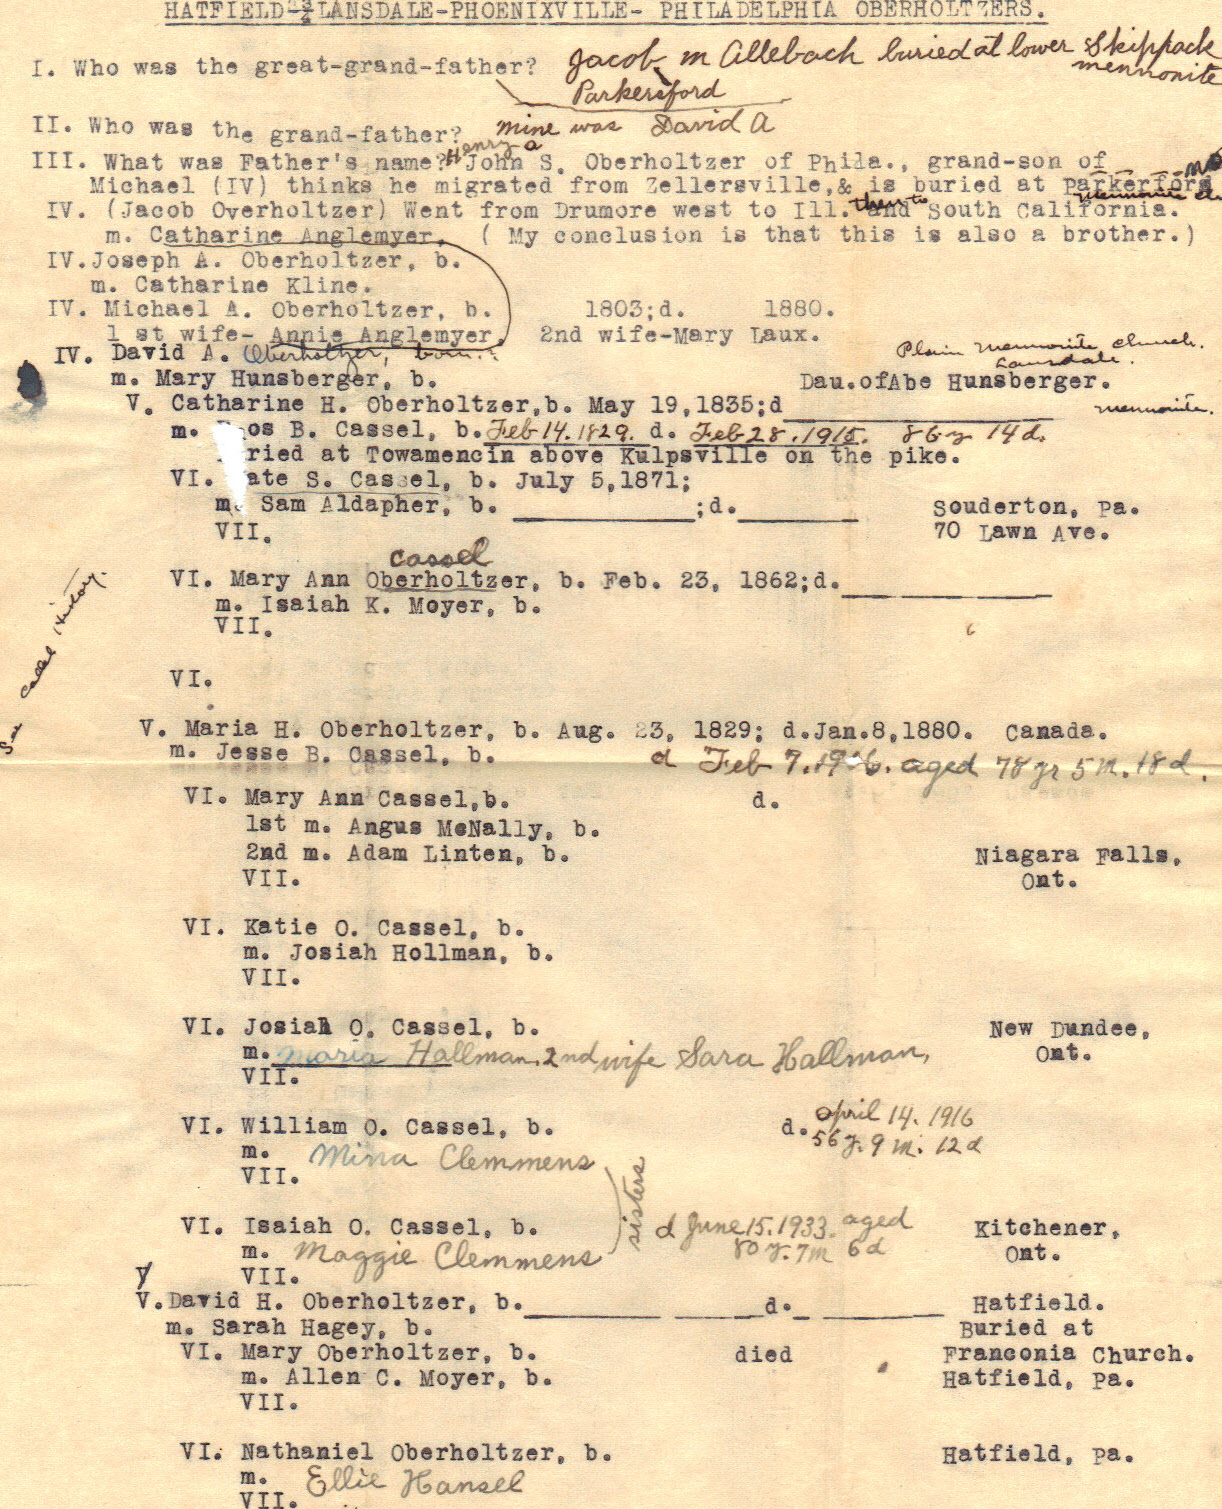 HATFIELD-LANSDALE-PHOENIXVILLE- PHILADELPHIA OBERHOLTZERS.
I. Who was the great-grand-father? Jacob m Allebach buried at lower Skippack
mennonite
Parkersford
II. Who was the grand-father? mine was David A
Henry a
III. What was Father's name? John S. Oberholtzer of Phila., grand-son of
Michael (IV) thinks he migrated from Zellersville,& is buried at Parkerford
IV. (Jacob Overholtzer) Went from Drumore west to Ill. and South California.
m. Catharine Anglemyer, ( My conclusion is that this is also a brother.)
IV. Joseph A. Oberholtzer, b.
m. Catharine Kline.
IV. Michael A. Oberholtzer, b. 1803;d. 1880.
1 st wife- Annie Anglemyer, 2nd wife-Mary Laux.
IV. David A. Oberholtzer, born. Plain Mennonite church.
Lansdale.
m. Mary Hunsberger, b. Dau.ofAbe Hunsberger.
V. Catharine H. Oberholtzer,b. May 19,1835;d mennonite.
m. os B. Cassel, b. Feb 14. 1829. d. Feb 28. 1915. 86 y 14 d.
ried at Towamencin above Kulpsville on the pike.
VI. ate S. Cassel, b. July 5,1871;
m. Sam Aldapher, b. ;d. Souderton, Pa.
VII. 70 Lawn Ave.
cassel
VI. Mary Ann Oberholtzer, b. Feb. 23, 1862;d.
m. Isaiah K. Moyer, b.
VII.
Cassel History.
VI.
V. Maria H. Oberholtzer, b. Aug. 23, 1829; d.Jan.8,1880. Canada.
m. Jesse B. Cassel, b. d Feb 7. aged 78 yr 5 m. 18 d.
VI. Mary Ann Cassel,b. d.
1st m. Angus McNally, b.
2nd m. Adam Linten, b. Niagara Falls,
VII. Ont.
VI. Katie O. Cassel, b.
m. Josiah Hollman, b.
VII.
VI. Josiah O. Cassel, b. New Dundee,
m. Maria Hallman, 2nd wife Sara Hallman, Ont.
VII.
VI. William O. Cassel, b. d. April 14. 1916
56 y. 9 m. 12 d
m. Mina Clemmens
VII.
sisters
VI. Isaiah O. Cassel, b. d June 15. 1933. aged Kitchener,
m. Maggie Clemmens 80 y. 7 m 6 d Ont.
VII.
V.David H. Oberholtzer, b. d. Hatfield.
m. Sarah Hagey, b. Buried at
VI. Mary Oberholtzer, b. died Franconia Church.
m. Allen C. Moyer, b. Hatfield, Pa.
VII.
VI. Nathaniel Oberholtzer, b. Hatfield, Pa.
m. Ellie Hansel
VII.